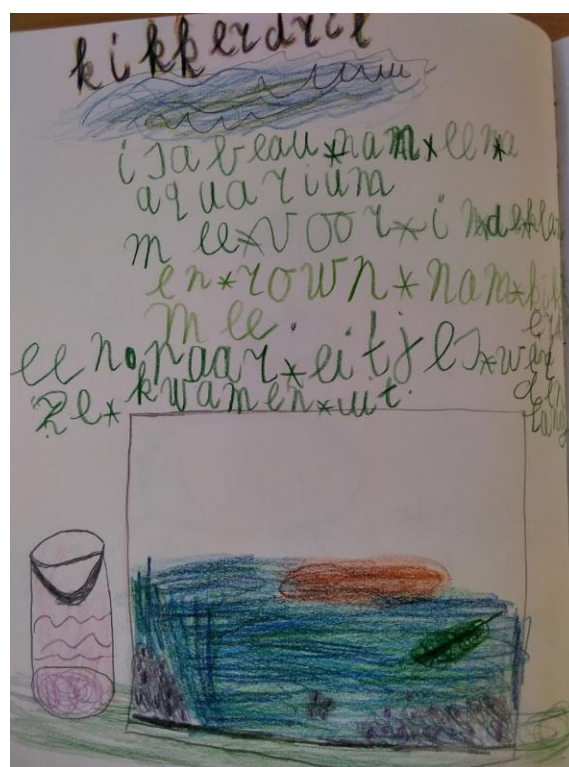 kikkerdril
isabeau*nam*een*a
aquarium
mee*voor*in*de*
en*rown*nam*
mee.
een.paar*eitjes*
ze*kwamen*uit.